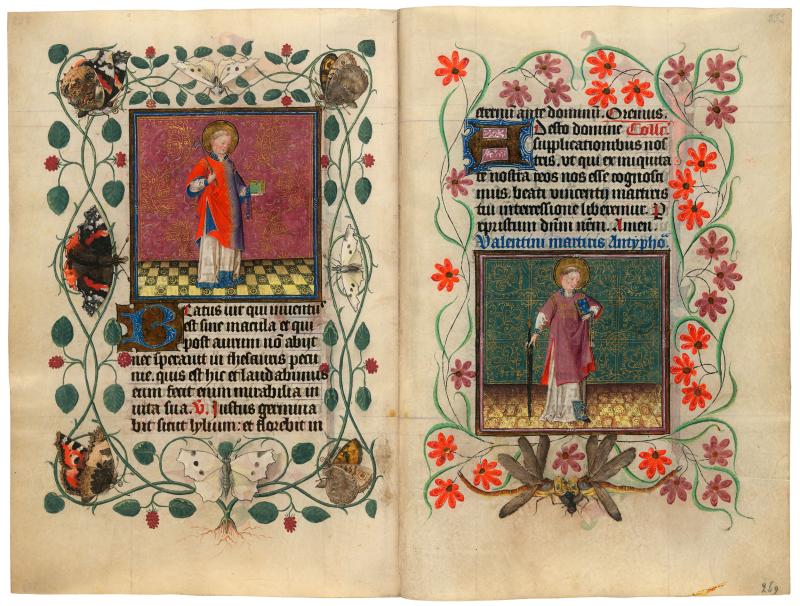 Beatus vir qui inventus
est sine macula et qui
post aurum nõ abijt
nec speravit in thesauris pecu
nie. quis est hic et laudabimus
eum fecit enim mirabilia in
vita sua. V. Justus germina
bit sicut lylium: et florebit in
eternū ante dominū. Oremus.
Adesto domine Collc̄
supplicationibus nos
tris. ut qui ex iniquita
te nostra reos nos esse cognosci
mus. beati vincentij martiris
tui intercessione liberemur. P
xpristum dñm nr̄m. Amen.
Valentini martiris Antypho
269